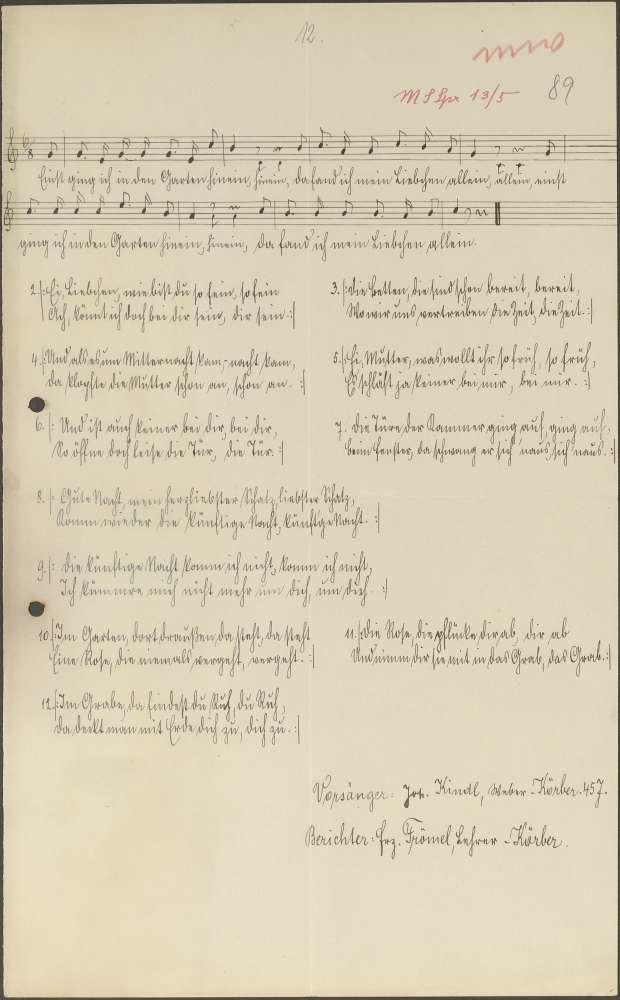 12.
13/5
89
6/8
Einst ging ich in den Garten hinein, hinein, da fand ich mein Liebchen allein, allein, einst
ging ich in den Garten hinein, hinein, da fand ich mein Liebchen allein.
2. |: Ei, Liebchen, wie bist du so fein, so fein
Ach, könnt ich doch bei dir sein, dir sein. :|
3. |: Die Betten, die sind schon bereit, bereit,
Wo wir uns vertreiben die Zeit, die Zeit. :|
4. |: Und als es um Mitternacht kam, -nacht kam,
Da klopfte die Mutter schon an, schon an. :|
5. |: Ei, Mutter, was wollt ihr so früh, so früh,
Es schläft ja keiner bei mir, bei mir. :|
6. |: Und ist auch keiner bei dir, bei dir,
So öffne doch leise die Tür, die Tür. :|
7. Die Türe der Kammer ging auf, ging auf,
beim Fenster, da schwang er sich 'naus, sich 'naus. :|
8. |: Gute Nacht, mein herzliebster Schatz, liebster Schatz,
Komm wieder die künftige Nacht, künft'ge Nacht. :|
9. |: Die künftige Nacht komm ich nicht, komm ich nicht,
Ich kümmre mich nicht mehr um dich, um dich. :|
10. |: Im Garten, dort draußen, da steht, da steht
Eine Rose, die niemals vergeht, vergeht. :|
11. |: Die Rose, die pflücke dir ab, dir ab
Und nimm dir sie mit in das Grab, das Grab. :|
12. |: Im Grabe, da findest du Ruh, du Ruh,
Da deckt man mit Erde dich zu, dich zu. :|
Vorsänger: Joh. Kindl, Weber - Körber. 457.
Berichter: Frz. Trömel, Lehrer - Körber.